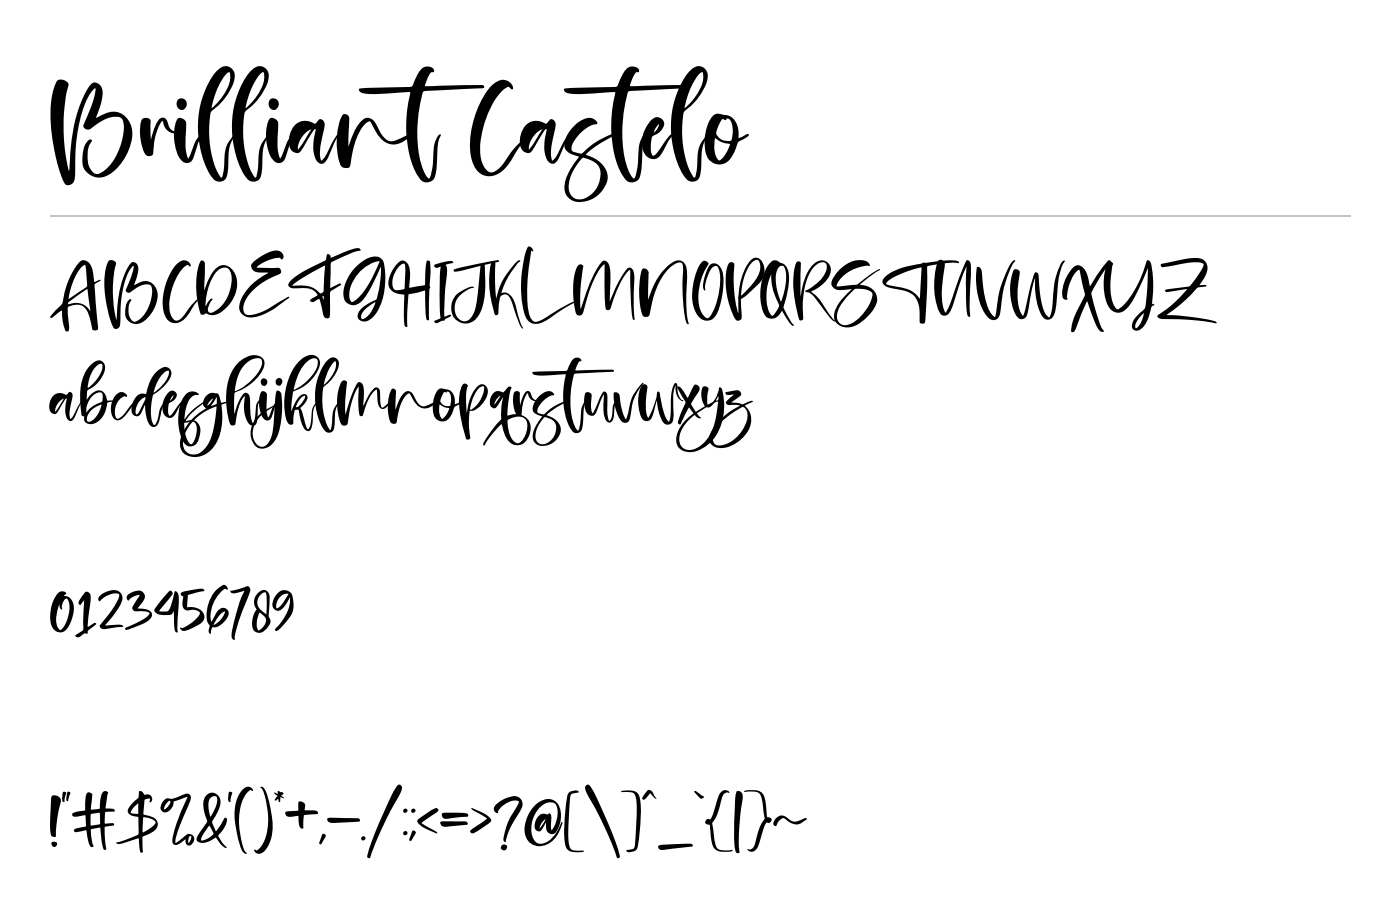 Brilliant Castelo
ABCDEFGHIJKLMNOPQRSTUVWXYZ
abcdefghijklmnopqrstuvwxyz
0123456789
!"#$%&'()*+,-./:;<=>?@[\]^_`{|}~